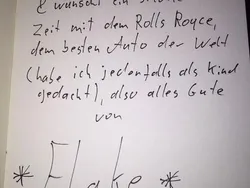 & wünscht ein
Zeit mit dem Rolls Royce,
dem besten Auto der Welt
(habe ich jedenfalls als Kind
gedacht), also alles Gute
von
* Flake *